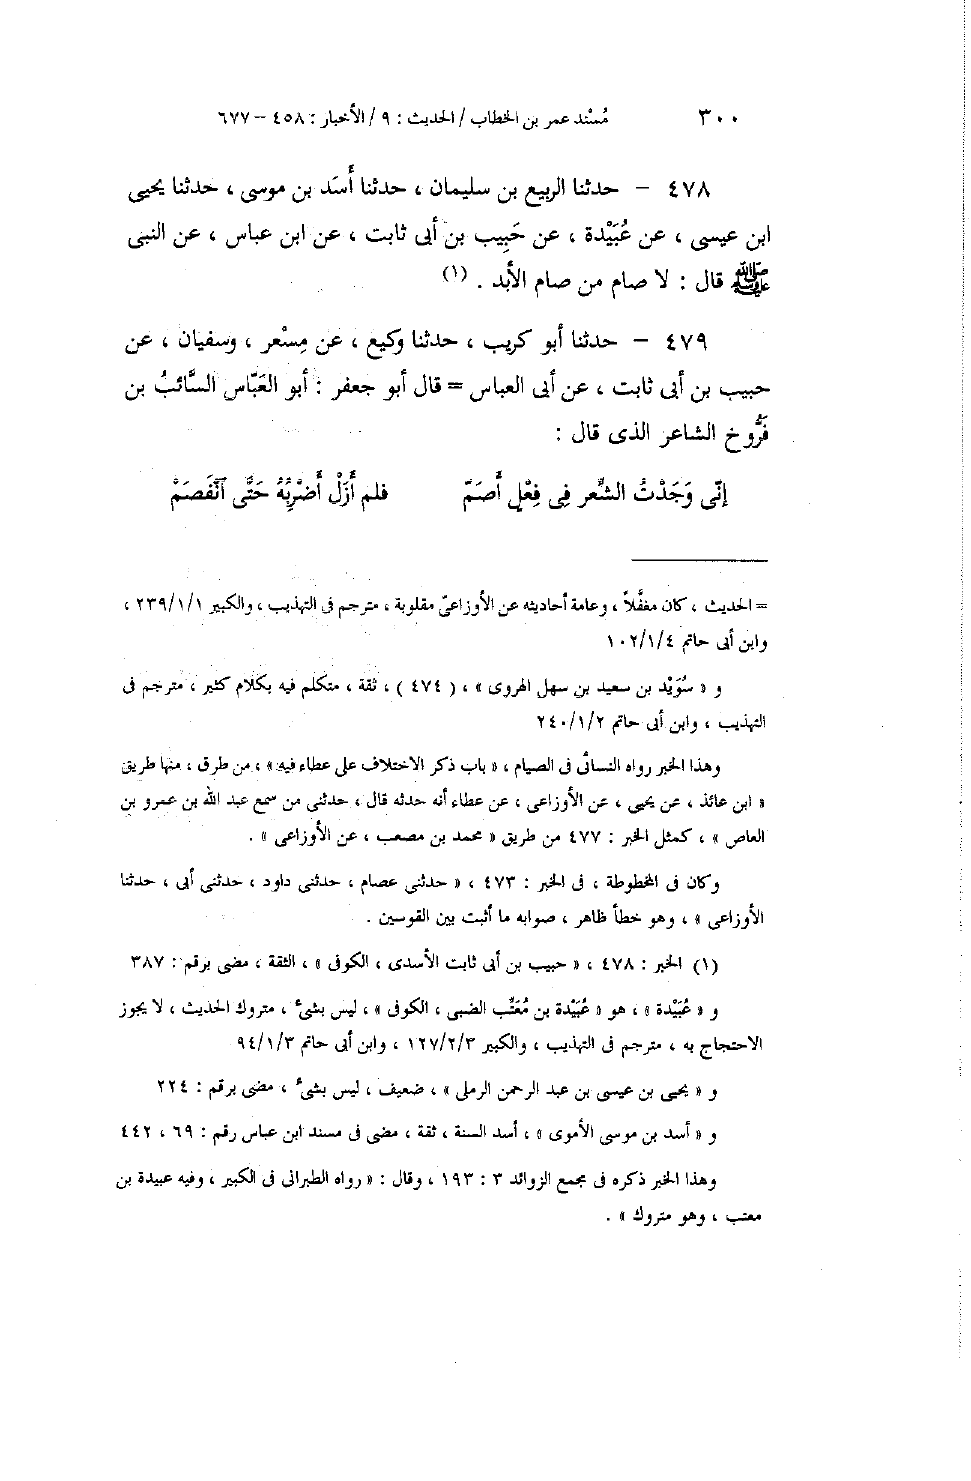 ٣٠٠ مُسْند عمر بن الخطاب / الحديث : ٩ / الأخبار : ٤٥٨ – ٦٧٧
٤٧٨ – حدثنا الربيع بن سليمان ، حدثنا أَسَد بن موسى ، حدثنا يحيى
ابن عيسى ، عن عُبَيْدة ، عن حَبِيب بن أبى ثابت ، عن ابن عباس ، عن النبى
ﷺ قال : لا صام من صام الأبد . (١)
٤٧٩ – حدثنا أبو كريب ، حدثنا وكيع ، عن مِسْعر ، وسفيان ، عن
حبيب بن أبى ثابت ، عن أبى العباس = قال أبو جعفر : أبو العَبّاس السَّائبُ بن
فَرُّوخ الشاعر الذى قال :
إنّى وَجَدْتُ الشِّعر فِى فِعْلٍ أَصَمّ فلم أَزَلْ أَضْرِبُهُ حَتَّى ٱنْفَصَمْ
= الحديث ، كان مغفَّلاً ، وعامة أحاديثه عن الأوزاعىّ مقلوبة ، مترجم فى التهذيب ، والكبير ٢٣٩/١/١ ،
وابن أبى حاتم ١٠٢/١/٤
و « سُوَيْد بن سعيد بن سهل الهروى » ، ( ٤٧٤ ) ، ثقة ، متكلم فيه بكلام كثير ، مترجم فى
التهذيب ، وابن أبى حاتم ٢٤٠/١/٢
وهذا الخبر رواه النسائى فى الصيام ، « باب ذكر الاختلاف على عطاء فيه » ، من طرق ، منها طريق
« ابن عائذ ، عن يحيى ، عن الأوزاعى ، عن عطاء أنه حدثه قال ، حدثنى من سمع عبد الله بن عمرو بن
العاص » ، كمثل الخبر : ٤٧٧ من طريق « محمد بن مصعب ، عن الأوزاعى » .
وكان فى المخطوطة ، فى الخبر : ٤٧٣ ، « حدثنى عصام ، حدثنى داود ، حدثنى أبى ، حدثنا
الأوزاعى » ، وهو خطأ ظاهر ، صوابه ما أثبت بين القوسين .
(١) الخبر : ٤٧٨ ، « حبيب بن أبى ثابت الأسدى ، الكوفى » ، الثقة ، مضى برقم : ٣٨٧
و « عُبَيْدة » ، هو « عُبَيْدة بن مُعَتِّب الضبى ، الكوفى » ، ليس بشىء ، متروك الحديث ، لا يجوز
الاحتجاج به ، مترجم فى التهذيب ، والكبير ١٢٧/٢/٣ ، وابن أبى حاتم ٩٤/١/٣
و « يحيى بن عيسى بن عبد الرحمن الرملى » ، ضعيف ، ليس بشىء ، مضى برقم : ٢٢٤
و « أسد بن موسى الأموى » ، أسد السنة ، ثقة ، مضى فى مسند ابن عباس رقم : ٦٩ ، ٤٤٢
وهذا الخبر ذكره فى مجمع الزوائد ٣ : ١٩٣ ، وقال : « رواه الطبرانى فى الكبير ، وفيه عبيدة بن
معتب ، وهو متروك » .